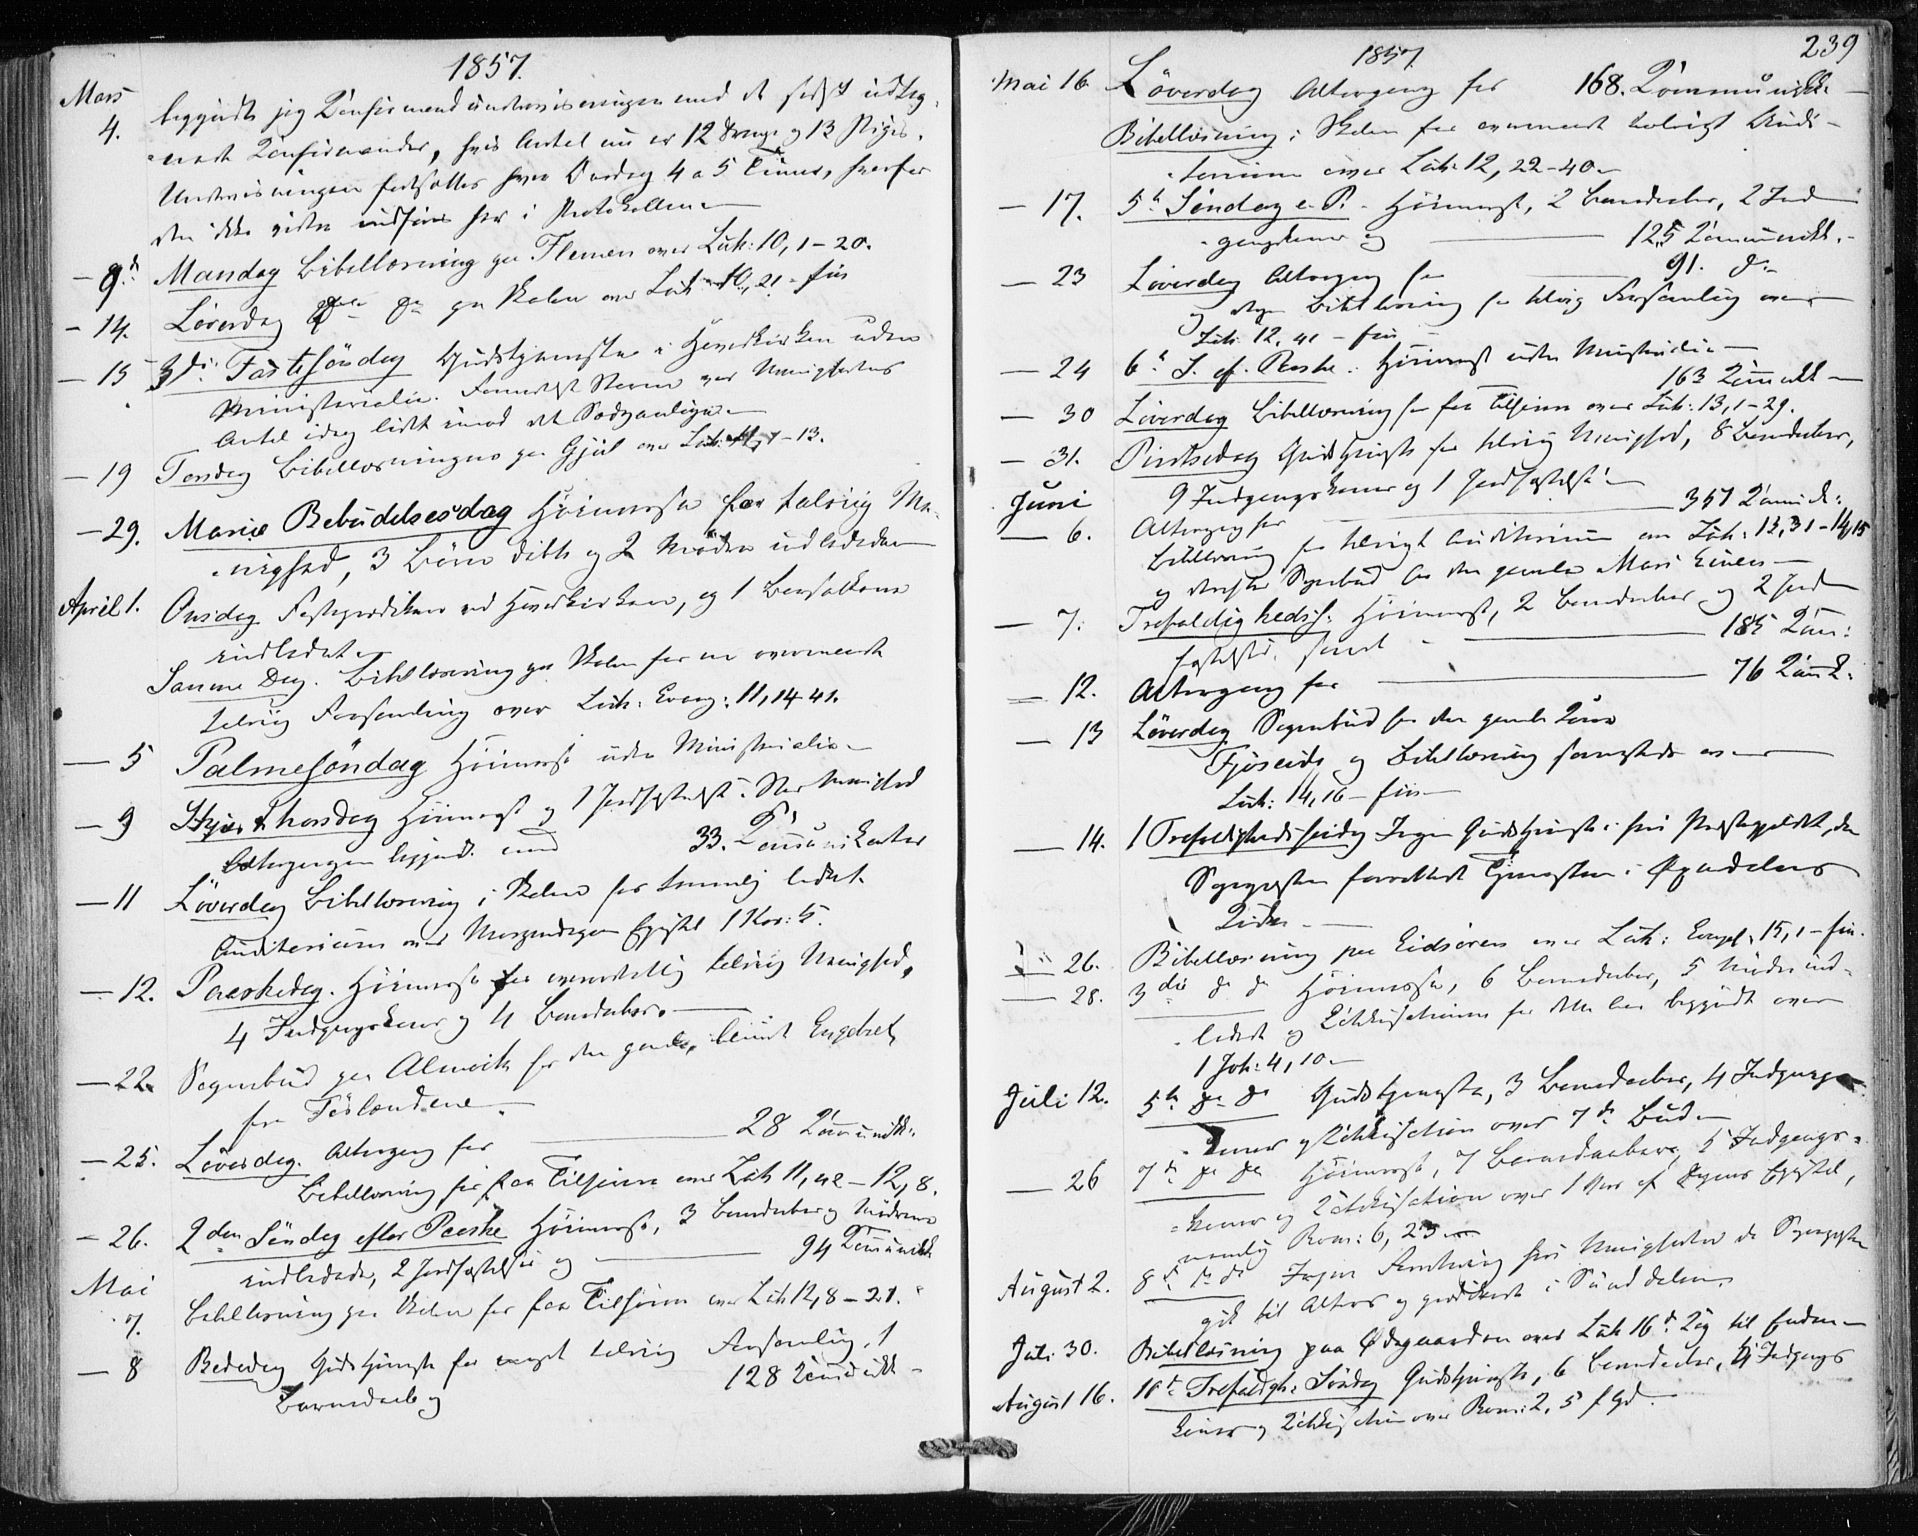 1857.
Mars
4. begyndte jeg Konfirmandundervisningen med de sidst udteg-
nede Konfirmander, hvis Antal nu er 12 Drenge og 13 Piger.
Undervisningen fortsattes hver Onsdag 4 a 5 Timer, hvorfor
den ikke videre indføres her i Protokollen
– 9d Mandag Bibellæsning paa Flemen over Luk: 10, 1-20.
– 14. Løverdag do paa Skolen over Luk 10, 21 - fin
– 15 3die Fastesøndag Gudstjeneste i Hovedkirken uden
Ministerialia. Storm Menighedens
Antal idag lidt imod det Sædvanlige
– 19 Torsdag Bibellæsningen paa Gjul over Luk: 11, 1-13.
– 29. Mariæ Bebudelsesdag Høimesse for talrig Me-
nighed, 3 Børn døbte og 2 Mødre indledede
April 1. Onsdag Fasteprædiken ved Hovedkirken, og 1 Barselkone
indledet
Samme Dag. Bibellæsning paa Skolen for en overmaade
talrig Forsamling over Luk: Evang: 11, 14-41.
– 5 Palmesøndag Høimesse uden Ministerialia
– 9 Skjærthorsdag Høimesse og 1 Jordfæstelse. Stor Menighed
Altergangen begyndt med 33. Kommunikanter
– 11 Løverdag Bibellæsning i Skolen for temmelig lidet
Auditorium over Morgendagens Epistel 1 Kor: 5.
– 12. Paaskedag. Høimesse for overordentlig talrig Menighed,
4 Indgangskoner og 4 Barnedaaber.
– 22. Sognebud paa Almvik for den gamle, blinde Engebret
fra Föslandene
– 25. Løverdag. Altergang for 28 Kommunikk:
Bibellæsning for faa Tilhörere over Luk 11, 42 – 12, 8.
– 26. 2den Søndag efter Paaske Høimesse, 3 Barnedaab og Mødrene
indledede, 2 Jordfæstelser og 94 Kommunikk
Mai
7. Bibellæsning paa Skolen for faa Tilhörere over Luk 12, 8 – 21.
– 8 Bededag Gudstjeneste for meget talrig Forsamling, 1
Barnedaab og 128 Kommunikk
1857. 239
Mai 16 Løverdag Altergang for 168. Kommunikk.
Bibellæsning i Skolen for overmaade talrigt Audi-
torium over Luk: 12, 22-40
– 17. 5te Søndag e. P. Høimesse, 2 Barnedaaber, 2 Ind-
gangskoner og 125 Kommunikk.
– 23 Løverdag Altergang for 91. do
og Bibellæsning for talrig Forsamling over
Luk: 12, 41 – fin
– 24 6te S. ef. Paaske. Høimesse uden Ministerialia
163 Kommunikk
– 30 Løverdag Bibellæsning for faa Tilhörere over Luk: 13, 1-29.
– 31. Pintsedag Gudstjeneste for talrig Menighed, 8 Barnedaaber,
9 Indgangskoner og 1 Jordfæstelse
Juni
– 6. Altergang for 357 Kommunik:
Bibellæsning for talrigt Auditorium over Luk: 13, 31 – 14, 15
og Sognebud den gamle Mari
– 7. Trefoldighedsf: Høimesse, 2 Barnedaaber og 2 Jord-
fæstelser, samt 185 Kom:
– 12. Altergang for 76 Komk:
– 13 Løverdag Sognebud for den gamle Kone
Fjøseide og Bibellæsning sammesteds over
Luk: 14, 16 – fin
– 14. 1 Trefoldighedssøndag Ingen Gudstjeneste i Præstegjeldet, da
Sognepresten forrettede Tjenesten i Øxendalens
Kirke
– 26. Bibellæsning paa Eidsøren over Luk: Evangel: 15, 1 – fin.
– 28. 3die do do Høimesse, 6 Barnedaaber, 5 Mødre ind-
ledet og Katekisationen for Aaret begyndt over
1 Joh: 4, 10
Juli 12. 5te do do Gudstjeneste, 3 Barnedaaber, 4 Indgangs-
koner og Katekisation over 7de Bud
– 26 7de do do Høimesse, 7 Barnedaaber, 5 Indgangs-
koner og Katekisation over 1 Vers af Dagens Epistel,
nemlig Rom: 6, 23
August 2. 8de do do Ingen Menigheden da Sognepresten
gik til Alters og prædikede i Sunddalen
Juli 30. Bibellæsning paa Ødegaarden over Luk 16de Kap til Enden
August 16. 10de Trefoldigh: Søndag Gudstjeneste, 6 Barnedaaber, 4 Indgangs
koner og Katekisation over Rom: 2, 5 flgd.